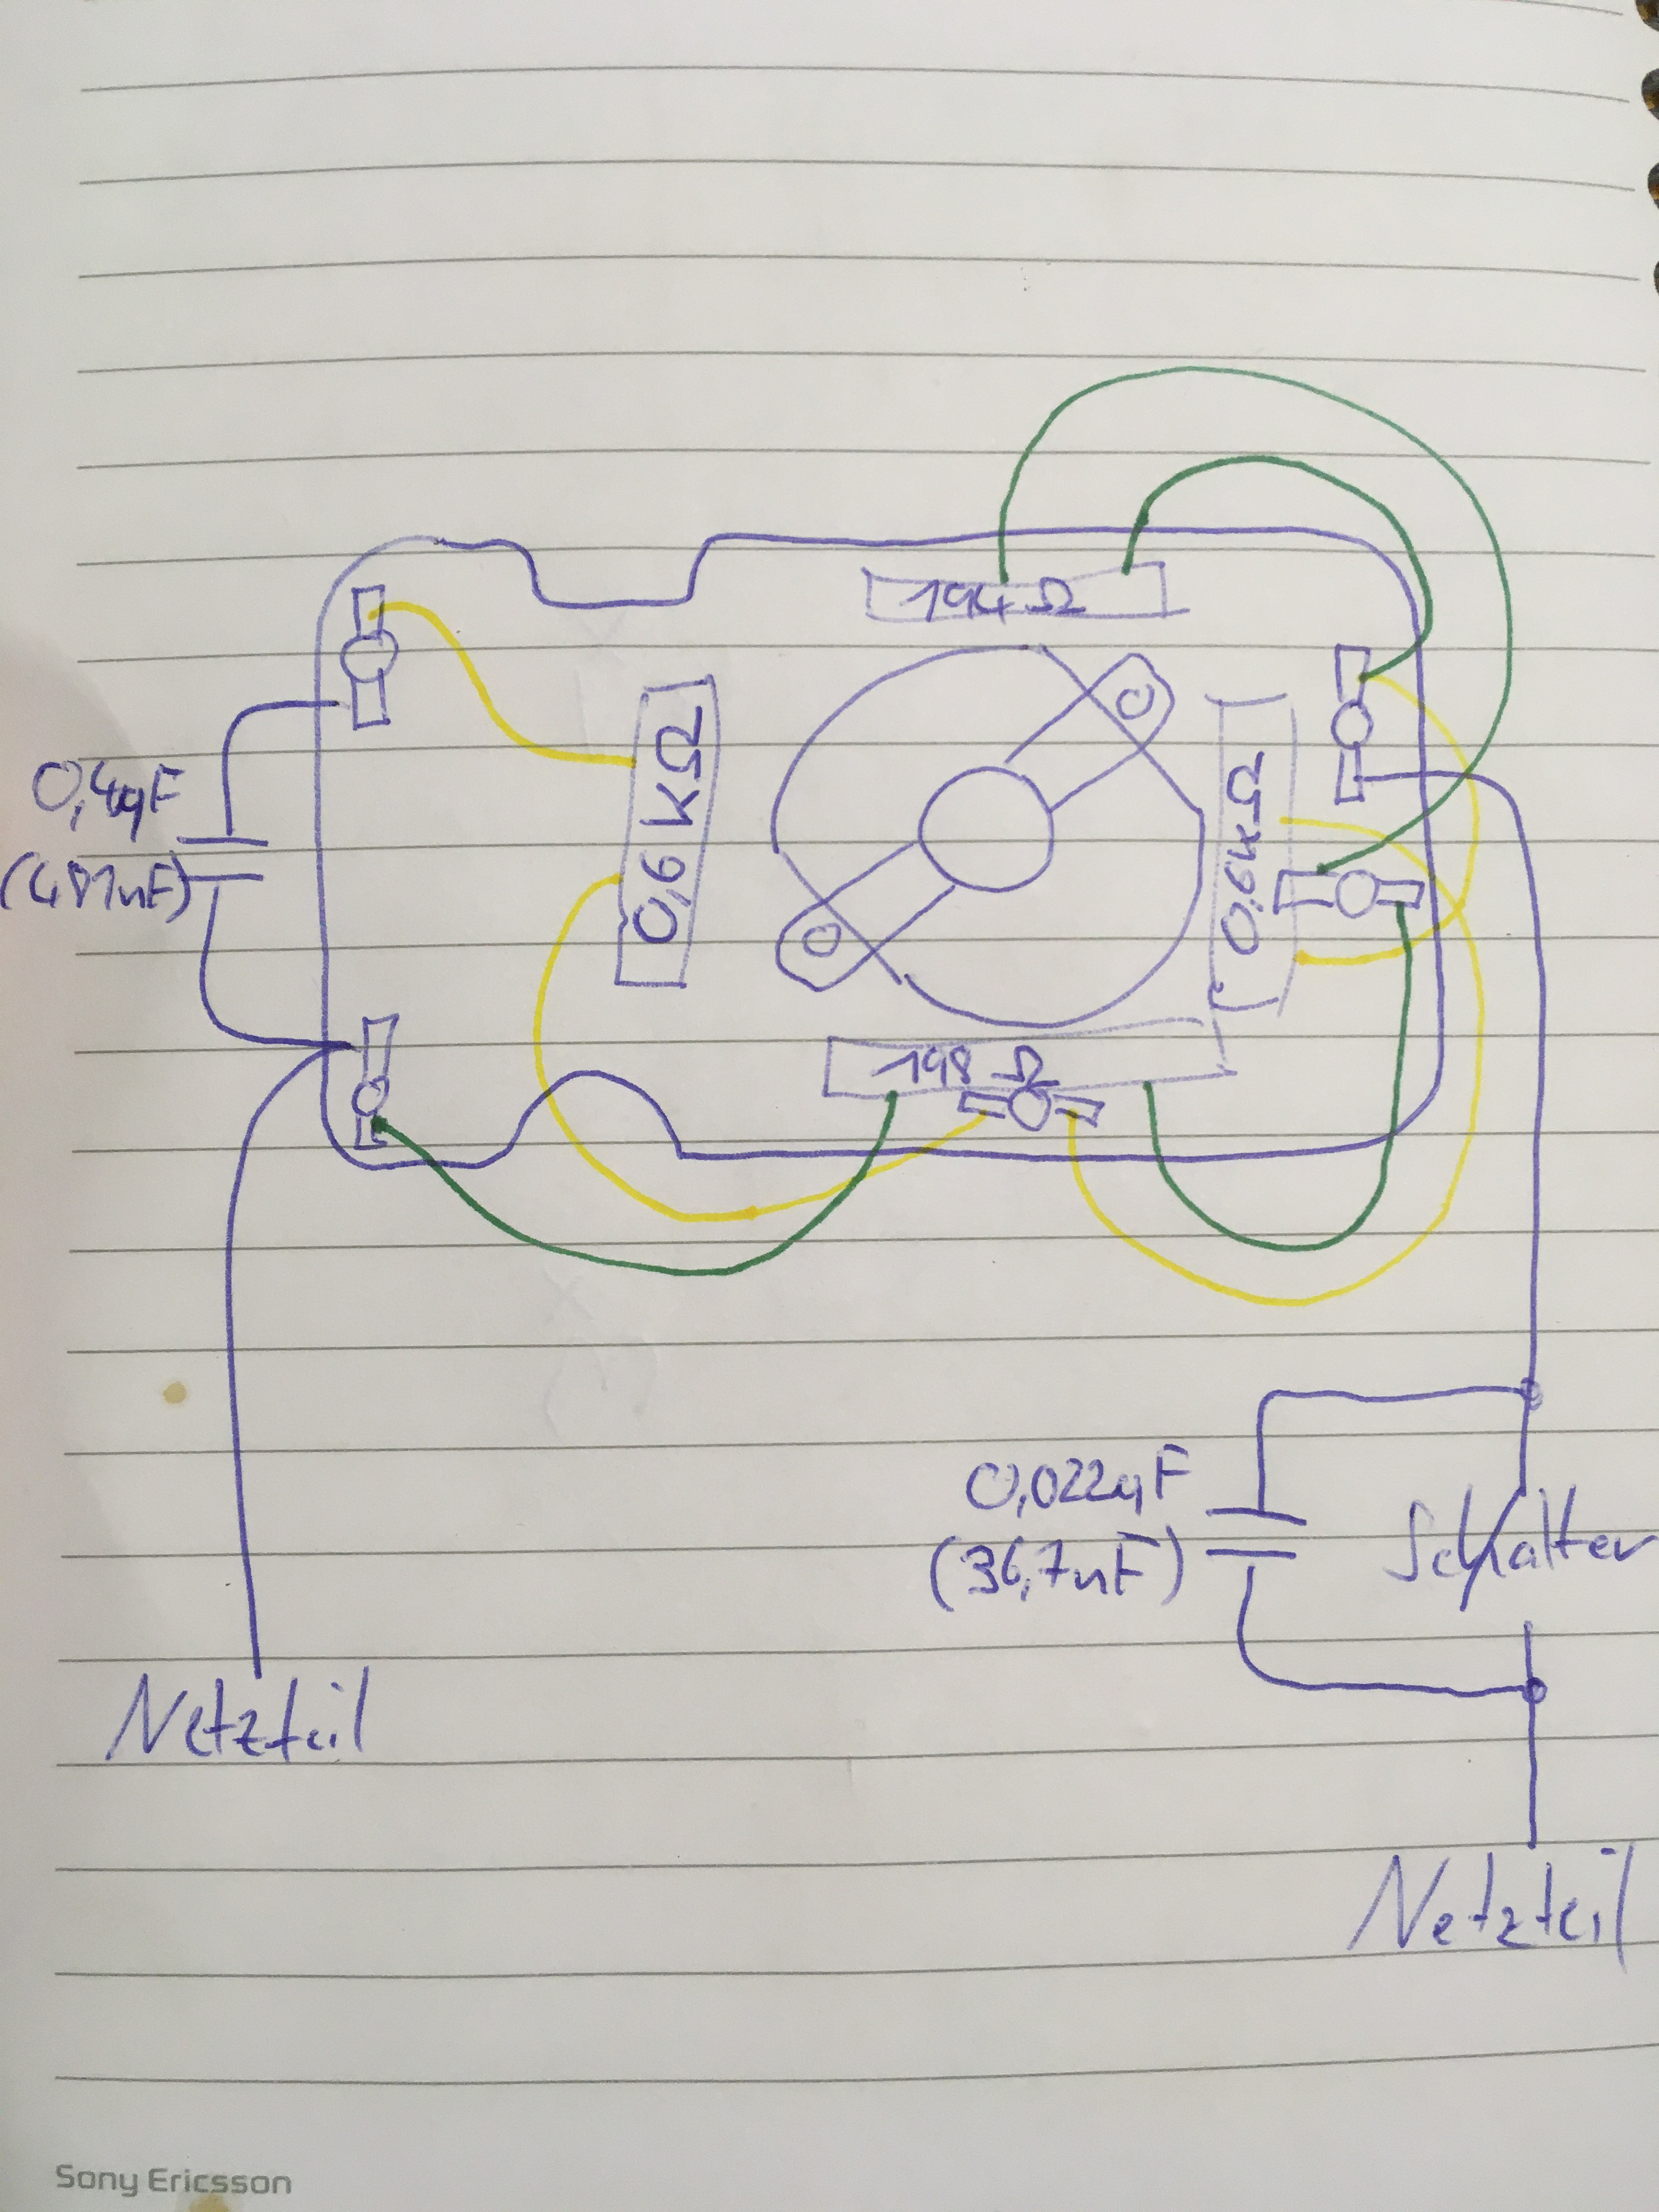 194 Ω
0,6 KΩ
0,6 KΩ
0,4µF
(481nF)
198 Ω
0,022µF
(36,7nF)
Schalter
Netzteil
Netzteil
Sony Ericsson